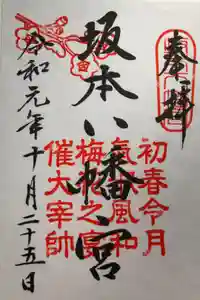 奉拝
坂本八幡宮
初春令月
氣淑風和
梅花之宴
催大宰帥
令和元年十月二十五日